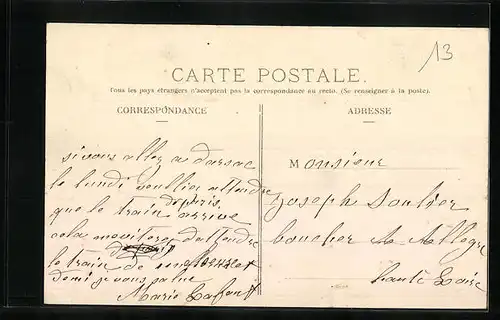 13
CARTE POSTALE.
Tous les pays étrangers n'acceptent pas la correspondance au recto. (Se renseigner à la poste).
CORRESPONDANCE
ADRESSE
si vous allez a darsac
le lundi veullier attendre
que le train de paris arrive
cela
le train de
demi je vous salue
Marie
Monsieur
Joseph Soulier
boucher A Allegre
haute Loire